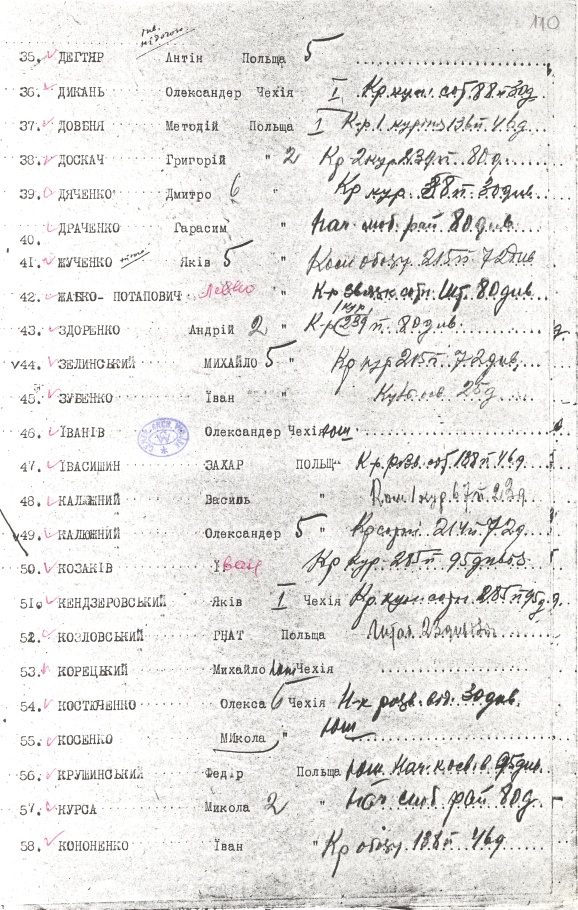 110
35. ДЕГТЯР Антін Польща 5
36. ДИКАНЬ Олександер Чехія I Кр кул. сот 88 п 30д
37. ДОВБНЯ Методій Польща I К-р 1 кур 138 п. 46д.
38. ДОСКАЧ Григорій " 2 Кр 2 кур 239 п. 80 д.
39. ДЯЧЕНКО Дмитро 6 " Кр кур. 88 п. 30 див.
40. ДРАЧЕНКО Гарасим " Нач. моб. рай 80 див.
41. ЖУЧЕНКО Яків 5 " Ком обозу 215 п 72 див
42. ЖАБКО- ПОТАПОВИЧ " К-р зв'язк. сотн. Шт. 80 див.
43. ЗДОРЕНКО Андрій 2 " К-р 1 кур 239 п. 80 див.
44. ЗЕЛИНСЬКИЙ МИХАЙЛО 5 " Кр кур 215 п 72 див.
45. ЗУБЕНКО Їван " 25 д
46. ЇВАНІВ Олександер Чехія Юш
47. ЇВАСИШИН ЗАХАР ПОЛЬЩ К-р. розв. сот 138 п 46д.
48. КАЛЮЖНИЙ Василь " Ком 1 кур. 67 п. 23д
49. КАЛЮЖНИЙ Олександер 5 " 214 п. 72д.
50. КОЗАКІВ Їван Кр кур. 285 п 95 див
51. КЕНДЗЕРОВСЬКИЙ Яків I Чехія Кр. кул. сотн. 285 п 95 д.
52. КОЗЛОВСЬКИЙ ГНАТ Польща Штаб. 23 див
53. КОРЕЦЬКИЙ Михайло Юш Чехія
54. КОСТЮЧЕНКО Олекса 6 Чехія Н-к розв. від. 30 див.
55. КОСЕНКО Микола " Юш
56. КРУШИНСЬКИЙ Федір Польща Юш Нач. 95 див.
57. КУРСА Микола 2 " Нач моб рай 80 д.
58. КОНОНЕНКО Їван " Кр обозу 138 п 46д